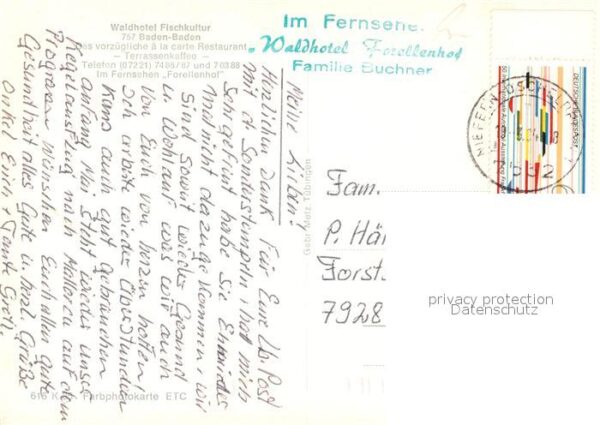 Waldhotel Fischkultur
757 Baden-Baden
Das vorzügliche à la carte Restaurant
— Terrassenkaffee —
Telefon (07221) 7486/87 und 70388
Im Fernsehen „Forellenhof"
Im Fernsehen
„Waldhotel Forellenhof
Familie Buchner
Meine Lieben!
Herzlichen Dank für Eure lb. Post
mit d. Sonderstempeln, hat mich
Sehr gefreut habe Sie
mal nicht dazu gekommen, wir
Sind Soweit wieder Gesund
u. Wohlauf was wir auch
von Euch von herzen hoffen!
Ich arbeite wieder Überstunden
kann auch gut gebrauchen
anfang Mai Steht wieder unser
Kegelausflug nach Mallorca auf dem
Programm Wünschen Euch allen gute
Gesundheit alles Gute u. herzl. Grüße
Onkel Erich + Tante Gretl.
Gebr. Metz, Tübingen
Fam.
P. Hä
Forst
7928
DEUTSCHE BUNDESPOST
NIEFERN-ÖSCHELBRONN
7532
privacy protection
Datenschutz
616 Farbphotokarte ETC